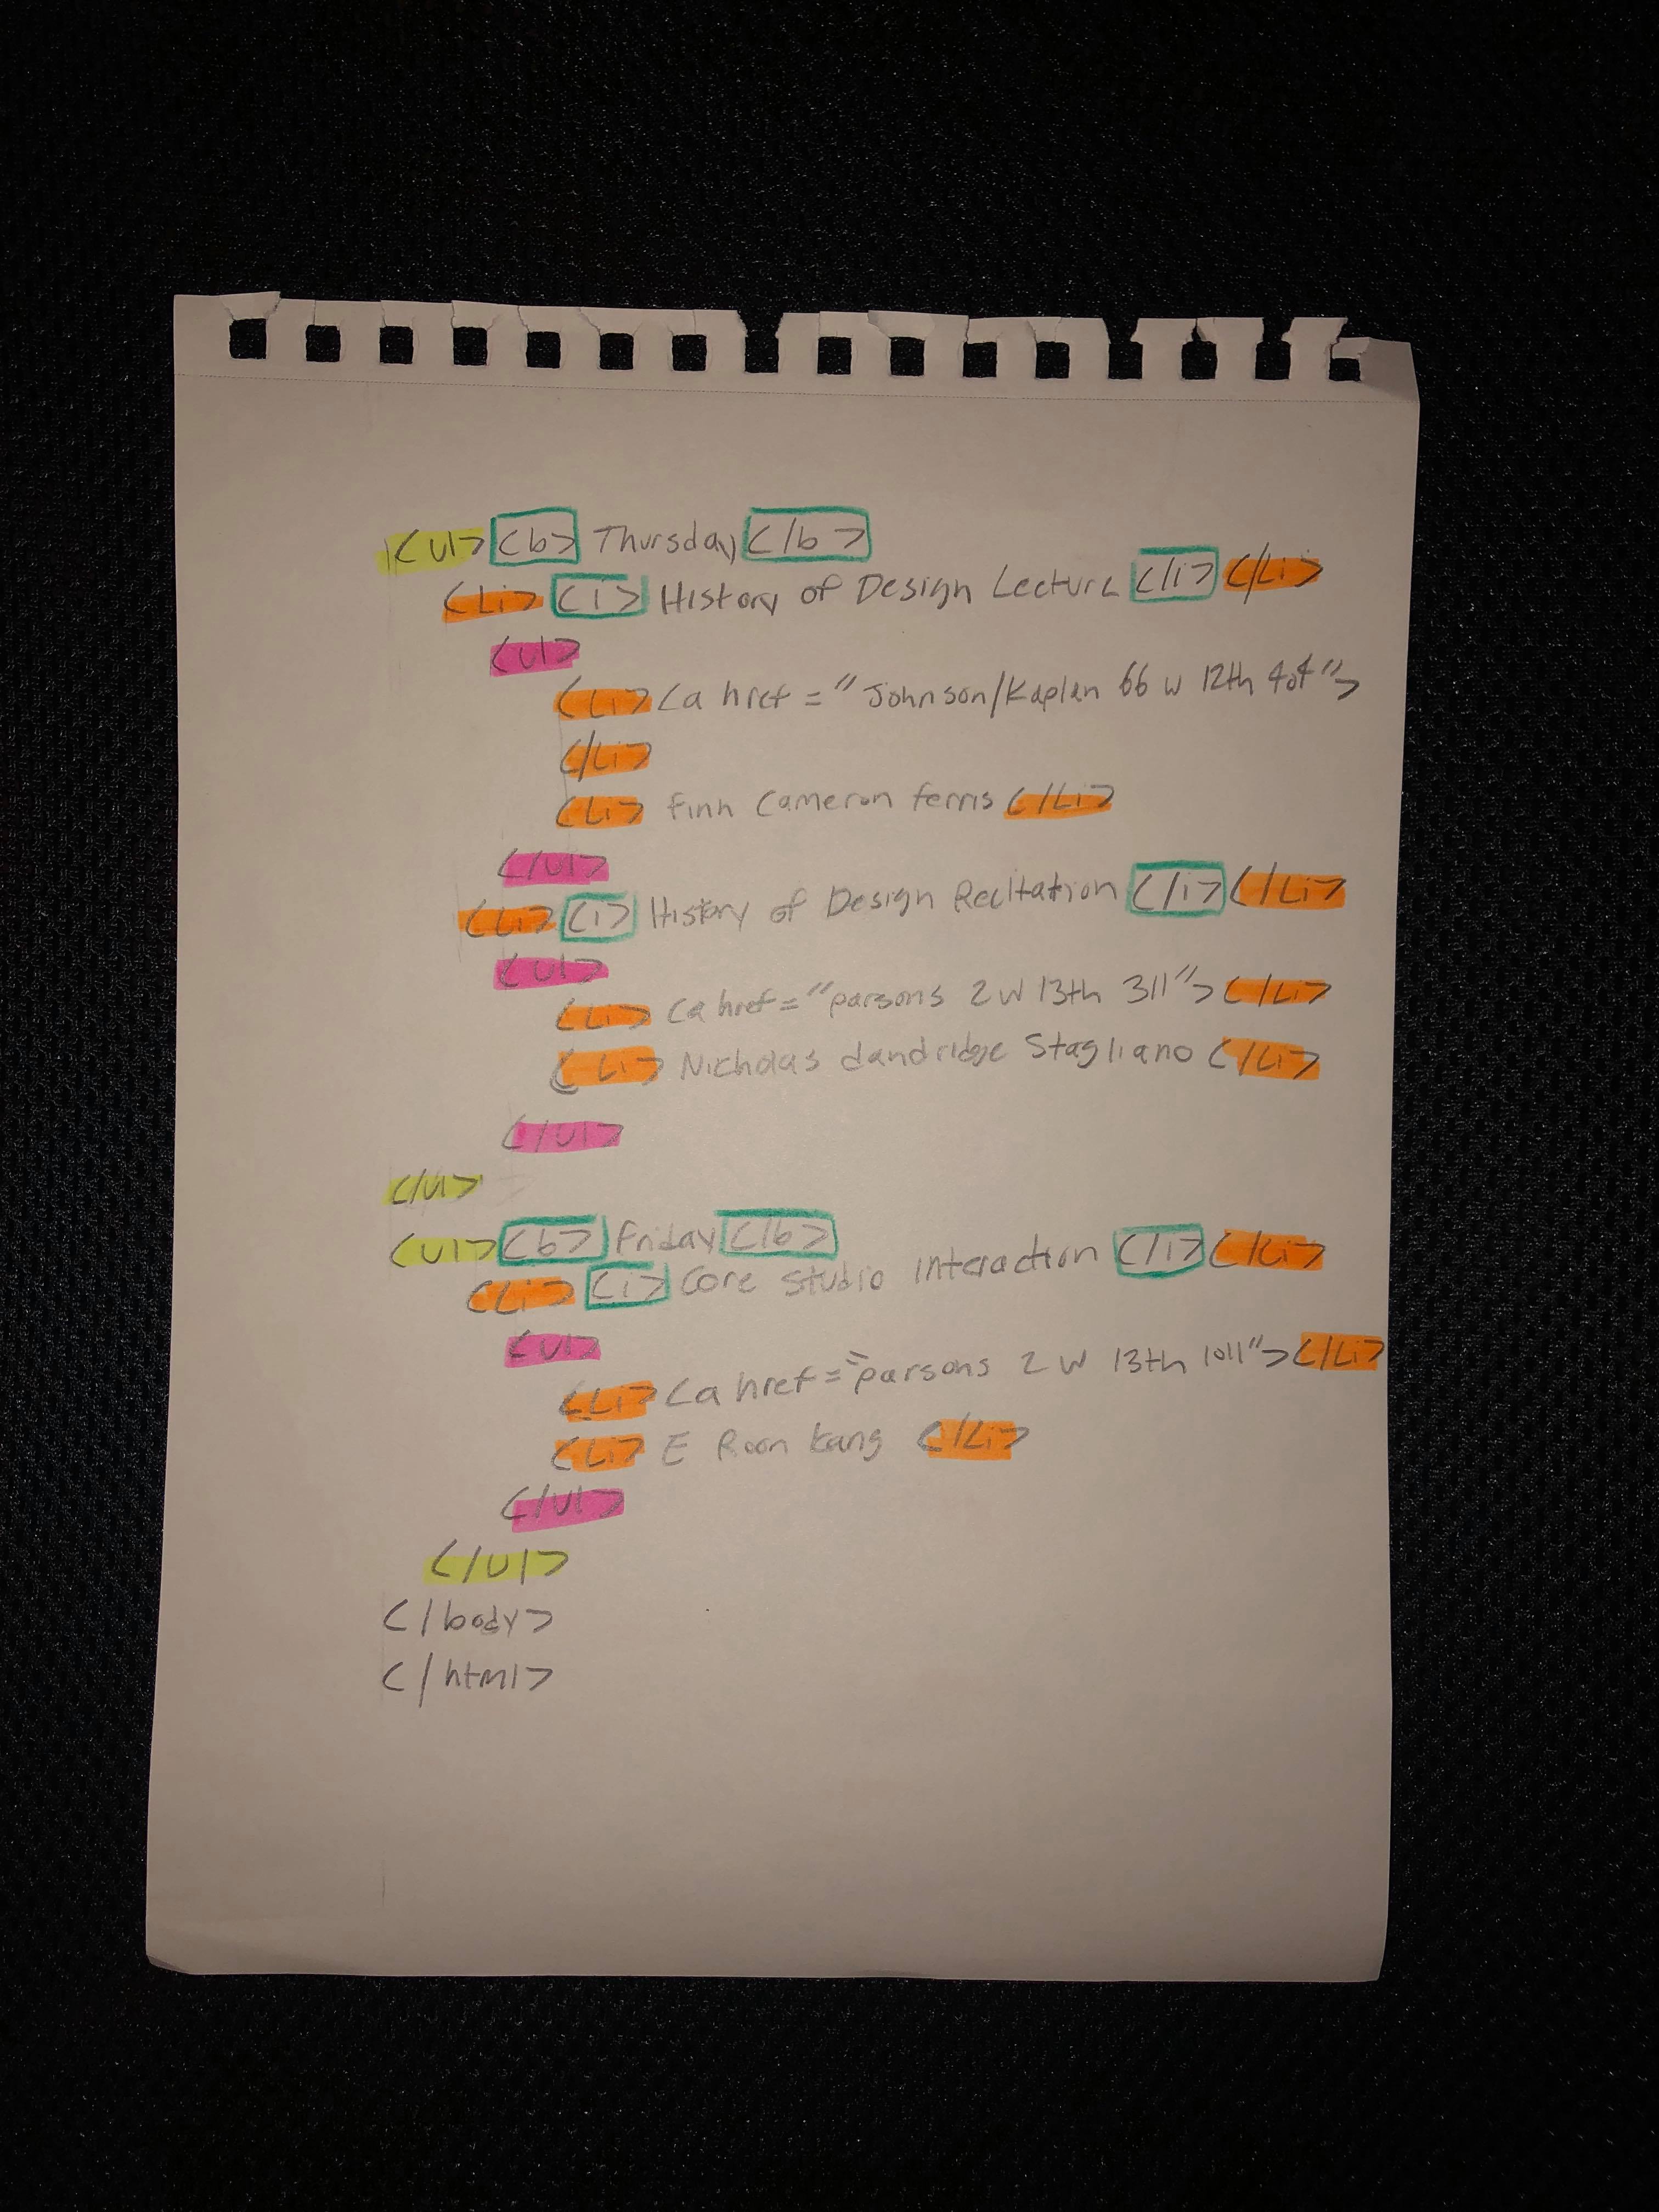 <ul> <b> Thursday </b>
<Li> <i> History of Design Lecture </i> </Li>
<ul>
<Li> <a href = "Johnson/Kaplan 66 w 12th 404">
</Li>
<Li> Finn Cameron ferris </Li>
</ul>
<Li> <i> History of Design Recitation </i> </Li>
<ul>
<Li> <a href = "parsons 2 w 13th 311"> </Li>
<Li> Nicholas dandridge Stagliano </Li>
</ul>
</ul>
<ul> <b> Friday </b>
<Li> <i> Core Studio Interaction </i> </Li>
<ul>
<Li> <a href = "parsons 2 w 13th 1011"> </Li>
<Li> E Roon Kang </Li>
</ul>
</ul>
</body>
</html>